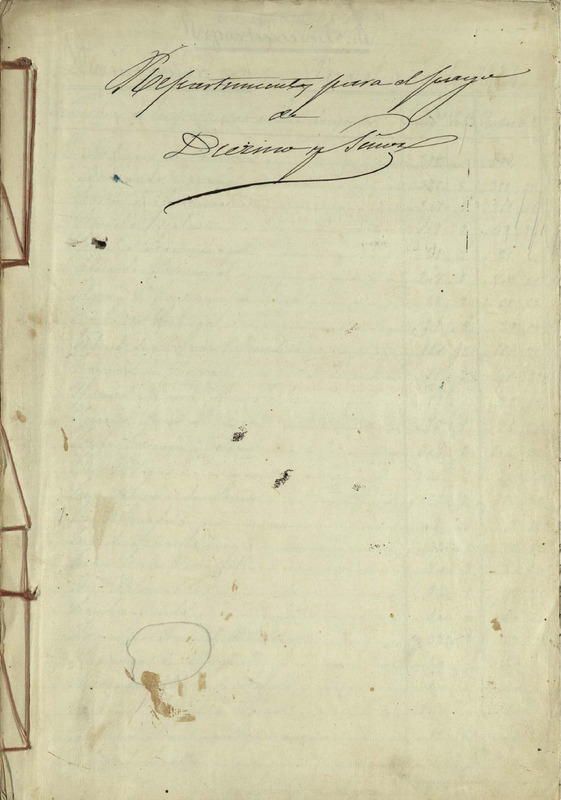 Repartimento para el pago
de
Diezmo y Señor